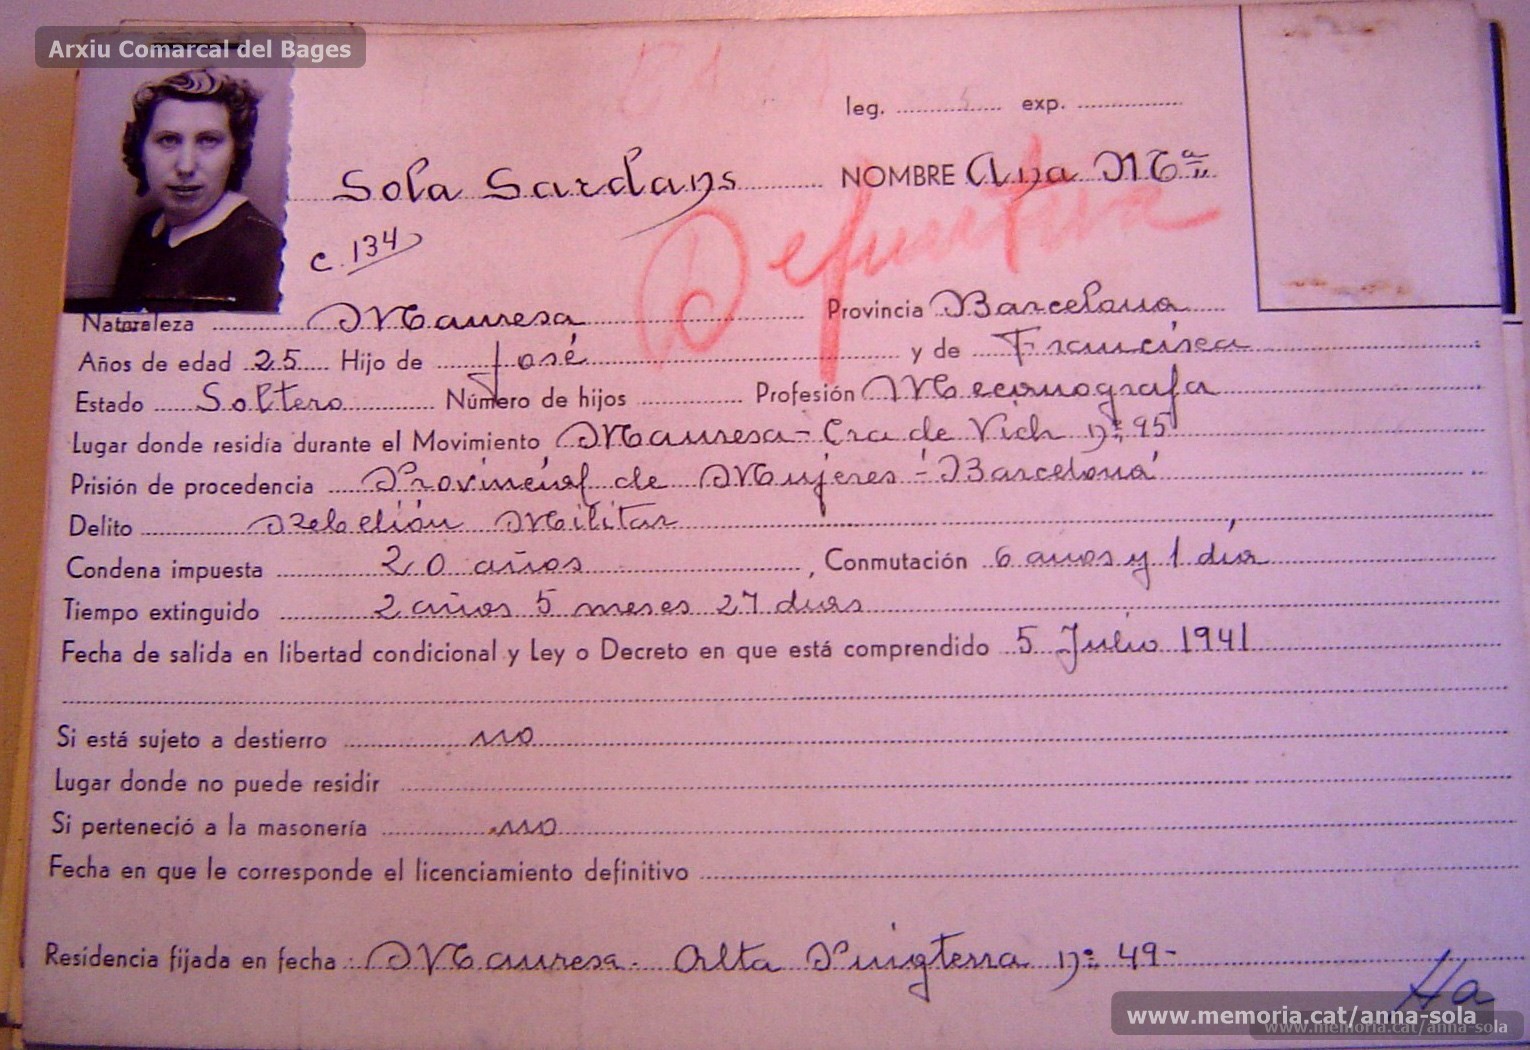 Arxiu Comarcal del Bages
leg. ........ exp. ........
Sola Sardans NOMBRE Ana Mª
Defuntua
c. 134
Naturaleza Manresa Provincia Barcelona
Años de edad 25 Hijo de José y de Francisca
Estado Soltero Número de hijos ........ Profesión Mecanografa
Lugar donde residía durante el Movimiento Manresa - Cra de Vich nº 95
Prisión de procedencia Provincial de Mujeres - Barcelona
Delito Rebelión Militar
Condena impuesta 20 años, Conmutación 6 años y 1 día
Tiempo extinguido 2 años 5 meses 27 dias
Fecha de salida en libertad condicional y Ley o Decreto en que está comprendido 5 Julio 1941
Si está sujeto a destierro no
Lugar donde no puede residir
Si perteneció a la masonería no
Fecha en que le corresponde el licenciamiento definitivo
Residencia fijada en fecha: Manresa. Alta Puigterra nº 49-
Ha
www.memoria.cat/anna-sola
www.memoria.cat/anna-sola